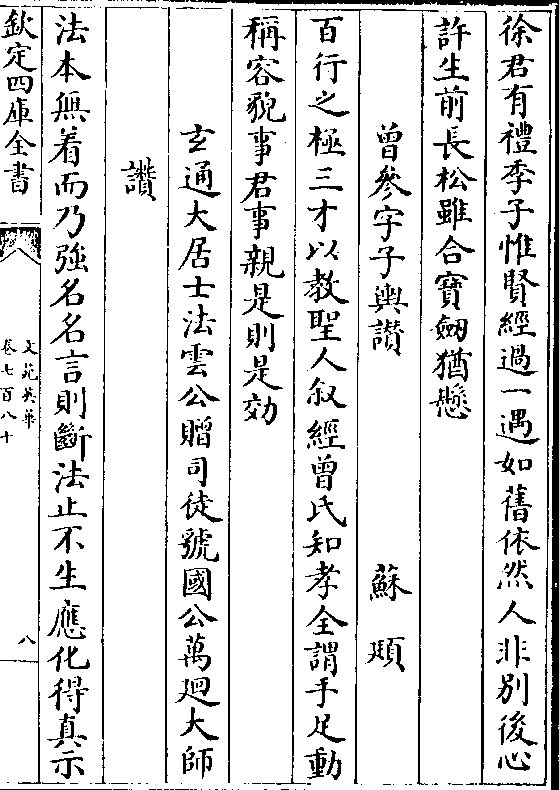 徐君有禮季子惟賢經過一遇如舊依然人非別後心
許生前長松雖合寶劒猶懸
曾參字子輿讃 蘇頲
百行之極三才以教聖人叙經曾氏知孝全謂手足動
稱容貌事君事親是則是効
玄通大居士法雲公贈司徒號國公萬廻大師
讃
法本無着而乃強名名言則斷法止不生應化得真示
欽定四庫全書
文苑英華
卷七百八十
八